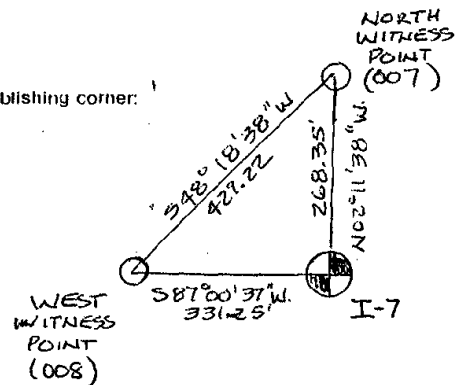 NORTH
WITNESS
POINT
(007)
blishing corner:
S48° 18'38" W
427.22
268.35'
N02°11'38"W.
S87°00'37"W.
331.25'
I-7
WEST
WITNESS
POINT
(008)